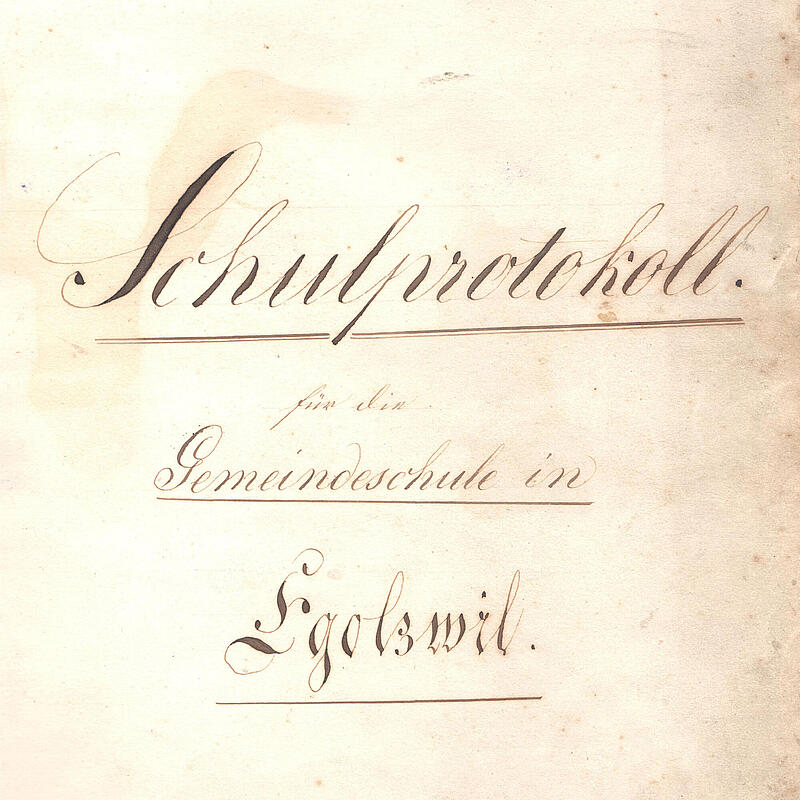 Schulprotokoll.
für die
Gemeindeschule in
Egolzwil.